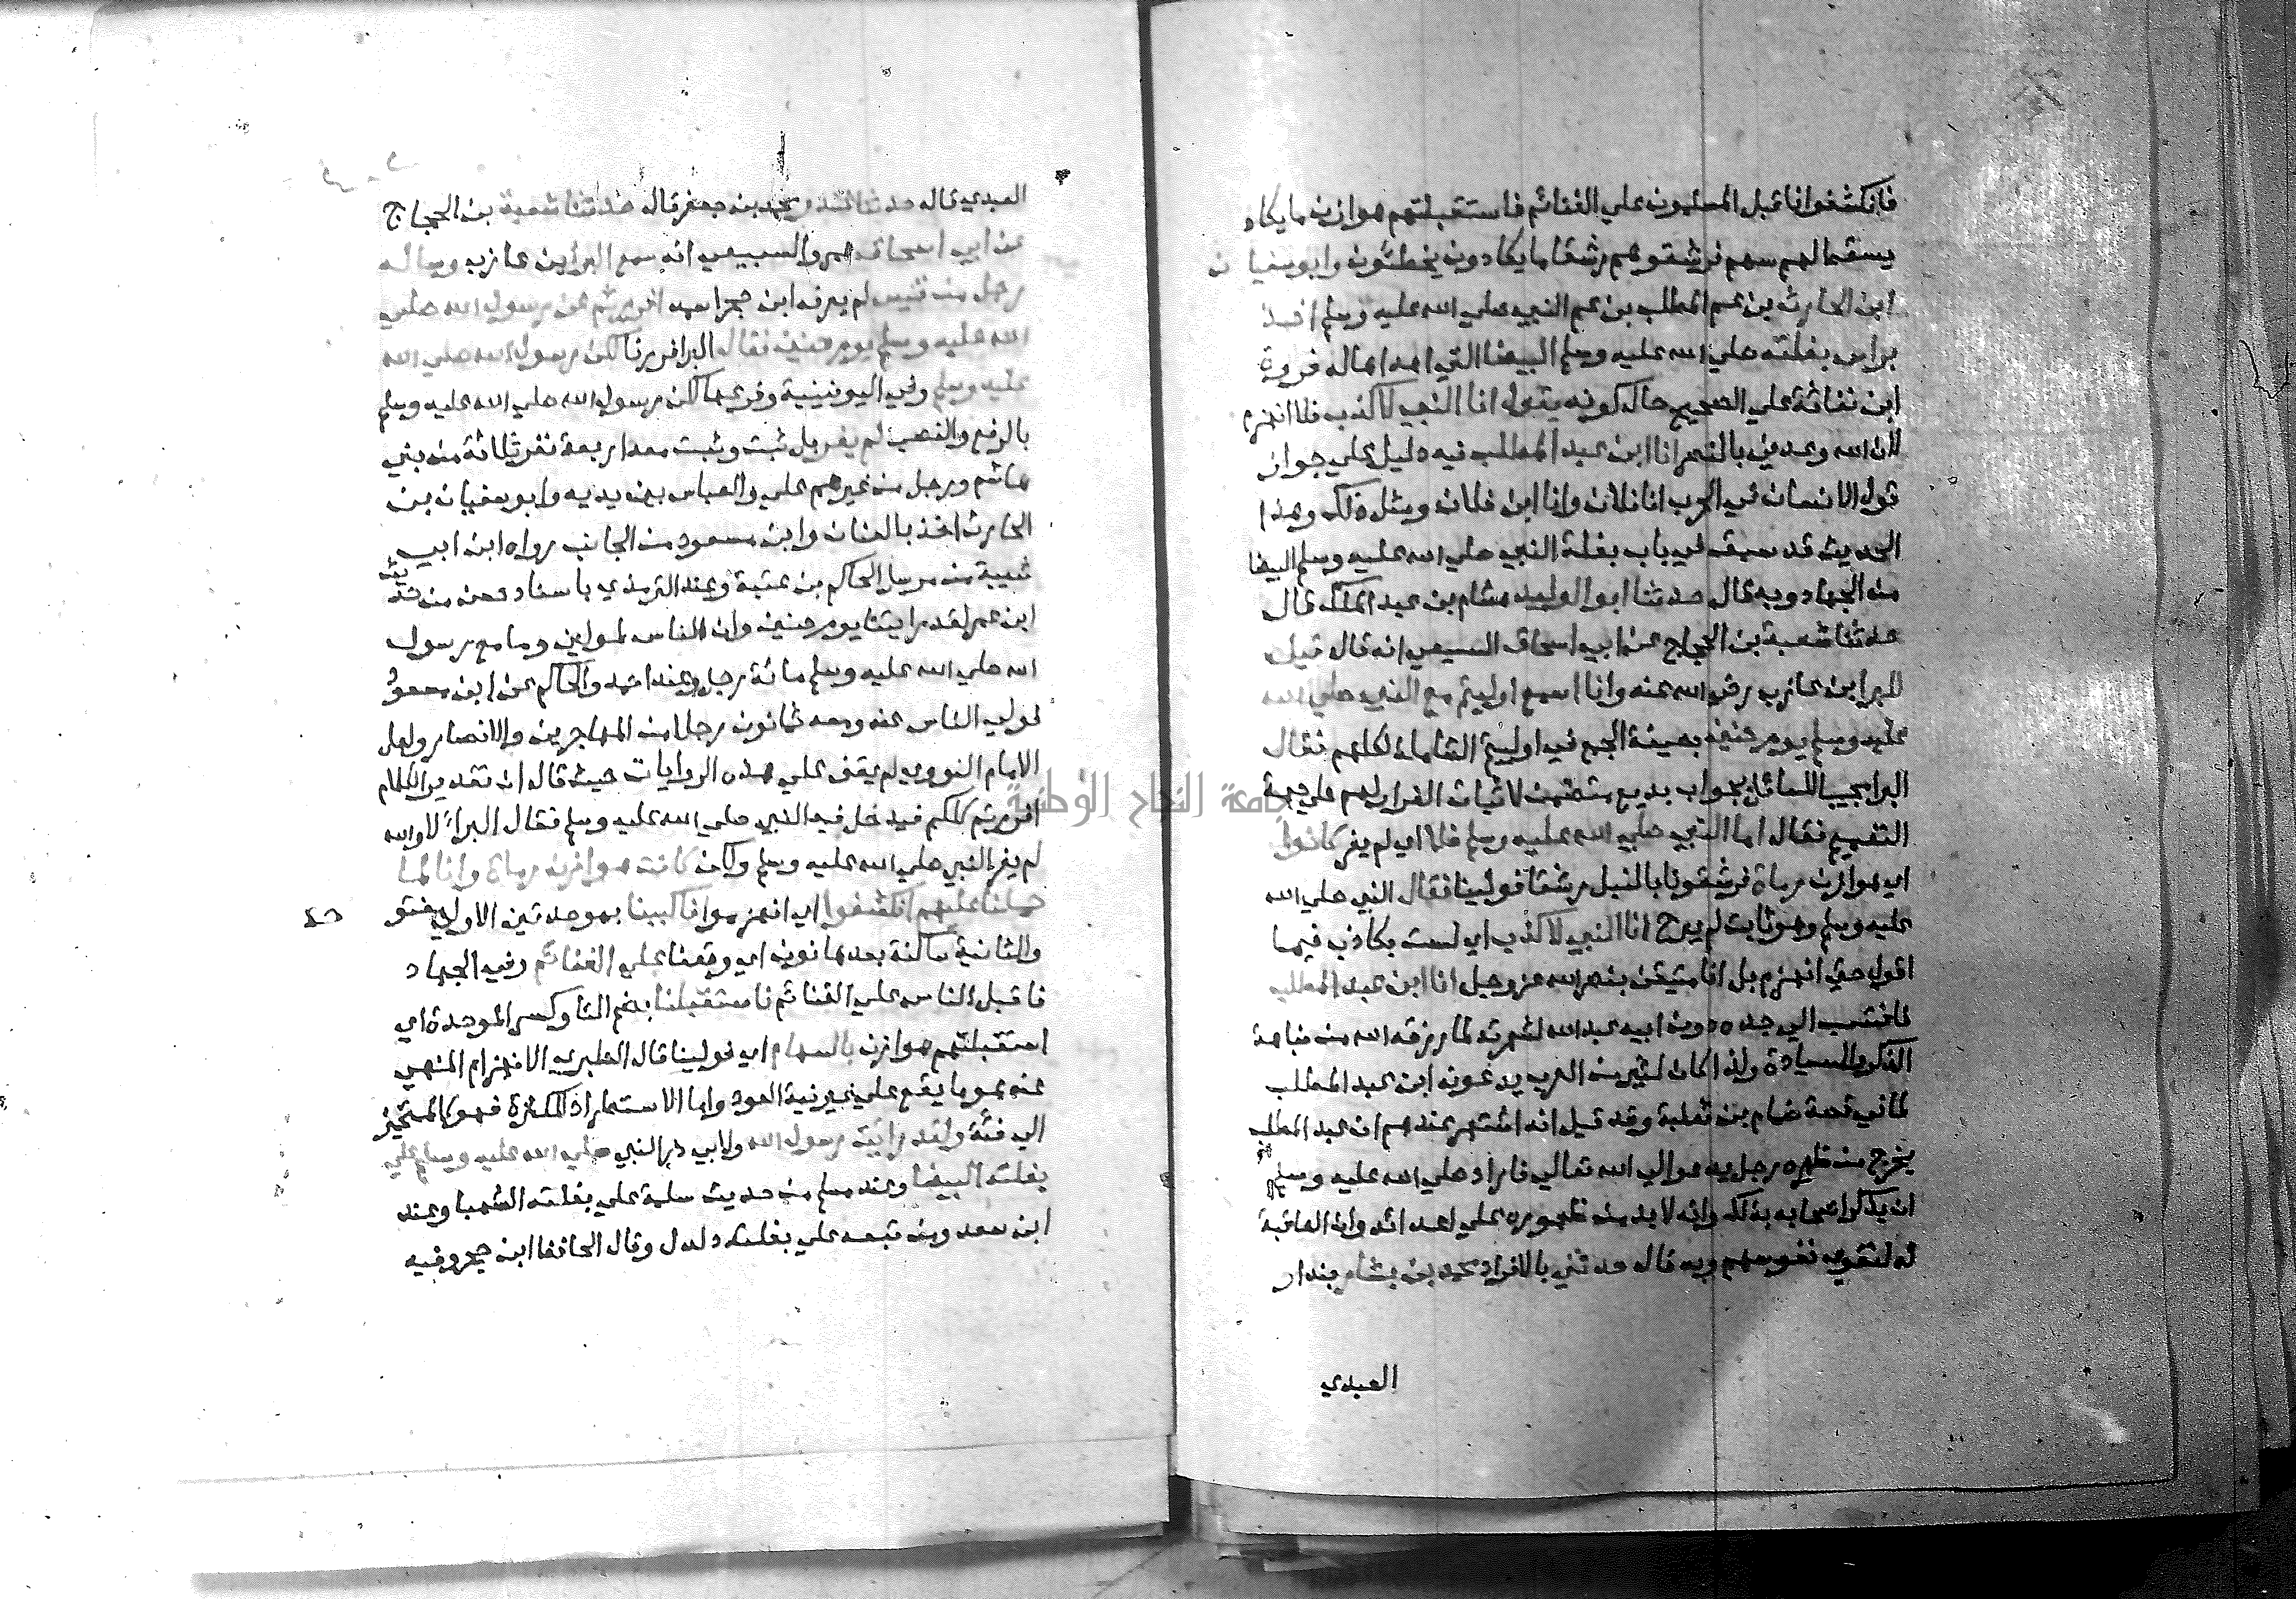 فانكشفوا فاقبل المسلمون علي الغنائم فاستقبلتهم هوازن ما يكاد
يسقط لهم سهم فرشقوهم رشقا ما يكادون يخطئون وابو سفيان
ابن الحارث بن عم المطلب بن عم النبي صلي الله عليه وسلم اخذ
براس بغلته صلي الله عليه وسلم البيضا التي اهداها له فروة
ابن نفاثة علي الصحيح حال كونه يقول انا النبي لا كذب فلا انهزم
لان الله وعدني بالنصر انا ابن عبد المطلب فيه دليل علي جواز
قول الانسان في الحرب انا فلان وانا ابن فلان ومثل ذلك وهذا
الحديث قد سبق في باب بغلة النبي صلي الله عليه وسلم البيضا
من الجهاد وبه قال حدثنا ابو الوليد هشام بن عبد الملك قال
حدثنا شعبة بن الحجاج عن ابي اسحاق السبيعي انه قال قيل
للبرا بن عازب رضي الله عنه وانا اسمع اوليتم مع النبي صلي الله
عليه وسلم يوم حنين بصيغة الجمع في اوليتم الشاملة لكلهم فقال
البرا مجيبا للسائل بجواب بديع متضمن لاثبات الفرار لهم علي جهة
التعميم فقال اما النبي صلي الله عليه وسلم فلا اي لم يفر كانوا
اي هوازن رماة فرشقونا بالنبل رشقا فولينا فقال النبي صلي الله
عليه وسلم وهو ثابت لم يبرح انا النبي لا كذب اي لست بكاذب فيما
اقول حتي انهزم بل انا متيقن بنصر الله عز وجل انا ابن عبد المطلب
فانتسب الي جده دون ابيه عبد الله لشهرته لما رزقه الله من نباهة
الذكر والسيادة ولذا كان كثير من العرب يدعونه ابن عبد المطلب
كما في قصة ضمام بن ثعلبة وقد قيل انه اشتهر عندهم ان عبد المطلب
يخرج من ظهره رجل يدعو الي الله تعالي فاراد صلي الله عليه وسلم
ان يذكر اصحابه بذلك وانه لا بد من ظهوره علي اعدائه وان العاقبة
له لتقوي نفوسهم وبه قال حدثني بالافراد محمد بن بشار بندار
العبدي
العبدي قال حدثنا غندر محمد بن جعفر قال حدثنا شعبة بن الحجاج
عن ابي اسحاق عمرو السبيعي انه سمع البرا بن عازب وساله
رجل من قيس لم يعرفه ابن حجر اسمه افررتم عن رسول الله صلي
الله عليه وسلم يوم حنين فقال البرا فررنا لكن رسول الله صلي الله
عليه وسلم وفي اليونينية وفرعها لكن رسول الله صلي الله عليه وسلم
بالرفع والنصب لم يفر بل ثبت وثبت معه اربعة نفر ثلاثة من بني
هاشم ورجل من غيرهم علي والعباس بين يديه وابو سفيان بن
الحارث اخذ بالعنان وابن مسعود من الجانب رواه ابن ابي
شيبة من مرسل الحاكم بن عتبة وعند الترمذي باسناد حسن من حديث
ابن عمر لقد رايتنا يوم حنين وان الناس لمولين وما مع رسول
الله صلي الله عليه وسلم مائة رجل وعند احمد والحاكم عن ابن مسعود
فولي الناس عنه ومعه ثمانون رجلا من المهاجرين والانصار ولعل
الامام النووي لم يقف علي هذه الروايات حيث قال ان تقدير الكلام
افررتم كلكم فيدخل فيه النبي صلي الله عليه وسلم فقال البراء لا والله
لم يفر النبي صلي الله عليه وسلم ولكن كانت هوازن رماة وانا لما
حملنا عليهم انكشفوا اي انهزموا فاكببنا بموحدتين الاولي مفتو
والثانية ساكنة بعدها نون اي وقعنا علي الغنائم وفي الجهاد
فاقبل الناس علي الغنائم فاستقبلنا بضم التا وكسر الموحدة اي
استقبلتهم هوازن بالسهام اي فولينا قال الطبري الانهزام المنهي
عنه هو ما يقع علي غير نية العود واما الاستطراد للكثرة فهو كالمتحيز
الي فئة ولقد رايت رسول الله ولابي ذر النبي صلي الله عليه وسلم علي
بغلته البيضا وعند مسلم من حديث سلمة علي بغلته الشهبا وعند
ابن سعد ومن تبعه علي بغلته دلدل وقال الحافظ ابن حجر وفيه
جامعة النجاح الوطنية